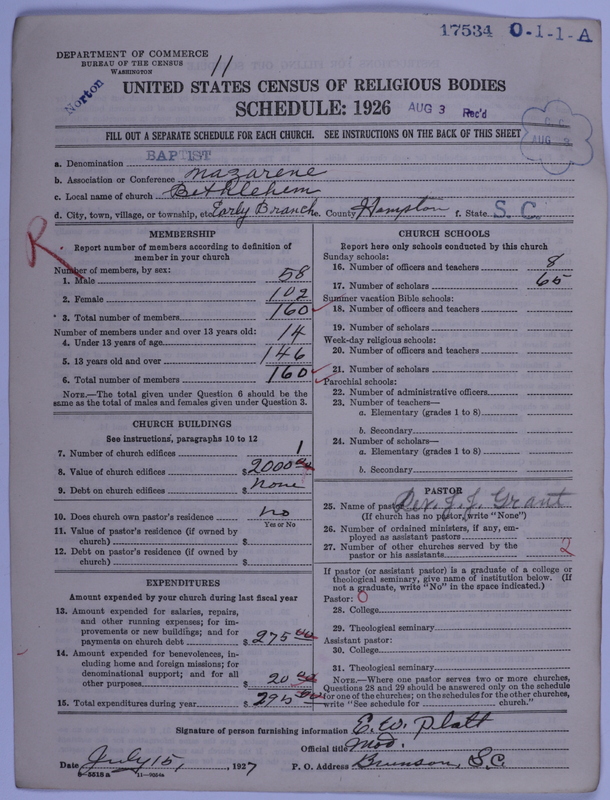 17534 O-1-1-A
DEPARTMENT OF COMMERCE
BUREAU OF THE CENSUS
WASHINGTON
11
Norton
UNITED STATES CENSUS OF RELIGIOUS BODIES
SCHEDULE: 1926
AUG 3 Rec'd
AUG 3
FILL OUT A SEPARATE SCHEDULE FOR EACH CHURCH. SEE INSTRUCTIONS ON THE BACK OF THIS SHEET
a. Denomination BAPTIST
b. Association or Conference Nazarene
c. Local name of church Bethlehem
d. City, town, village, or township, etc. Early Branch e. County Hampton f. State S. C.
R
MEMBERSHIP
Report number of members according to definition of
member in your church
Number of members, by sex:
1. Male 58
2. Female 102
3. Total number of members 160
Number of members under and over 13 years old:
4. Under 13 years of age 14
5. 13 years old and over 146
6. Total number of members 160
NOTE.—The total given under Question 6 should be
same as the total of males and females given under Question 3.
CHURCH BUILDINGS
See instructions, paragraphs 10 to 12
7. Number of church edifices 1
8. Value of church edifices $ 2000 00
9. Debt on church edifices $ None
10. Does church own pastor's residence No
Yes or No
11. Value of pastor's residence (if owned by
church) $
12. Debt on pastor's residence (if owned by
church) $
EXPENDITURES
Amount expended by your church during last fiscal year
13. Amount expended for salaries, repairs,
and other running expenses; for im-
provements or new buildings; and for
payments on church debt $ 275 00
14. Amount expended for benevolences, in-
cluding home and foreign missions; for
denominational support; and for all
other purposes $ 20 00
15. Total expenditures during year $ 295 00
CHURCH SCHOOLS
Report here only schools conducted by this church
Sunday schools:
16. Number of officers and teachers 8
17. Number of scholars 65
Summer vacation Bible schools:
18. Number of officers and teachers
19. Number of scholars
Week-day religious schools:
20. Number of officers and teachers
21. Number of scholars
Parochial schools:
22. Number of administrative officers
23. Number of teachers—
a. Elementary (grades 1 to 8)
b. Secondary
24. Number of scholars—
a. Elementary (grades 1 to 8)
b. Secondary
PASTOR
25. Name of pastor Rev. J. J. Grant
(If church has no pastor, write "None")
26. Number of ordained ministers, if any, em-
ployed as assistant pastors
27. Number of other churches served by the
pastor or his assistants 2
If pastor (or assistant pastor) is a graduate of a college or
theological seminary, give name of institution below. (If
not a graduate, write "No" in the space indicated.)
Pastor: 0
28. College
29. Theological seminary
Assistant pastor:
30. College
31. Theological seminary
NOTE.—Where one pastor serves two or more churches,
Questions 28 and 29 should be answered only on the schedule
for one of the churches; on the schedules for the other churches,
write "See schedule for church."
Signature of person furnishing information E. W. Platt
Official title Mod.
Date July 15, 1927 P. O. Address Brunson, S.C
8-5518a 11-9054a